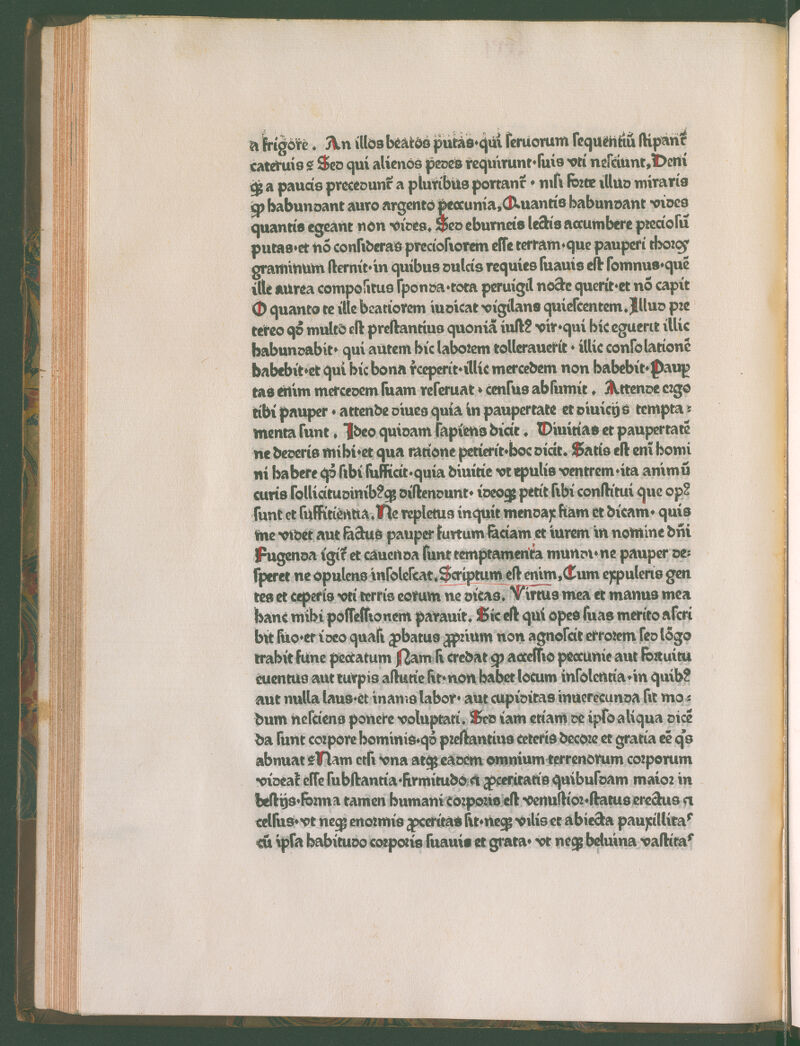 a frigore . An illos beatos putas·qui seruorum sequentiũ stipant᷑
cateruis ꝰ Sed qui alienos pedes requirunt·suis vti nesciunt, Deni
qꝫ a paucis precedunt᷑ a pluribus portant᷑ · nisi forte illud miraris
ꝙ habundant auro argento peccunia, Quantis habundant vides
quantis egeant non vides. Sed eburneis lectis accumbere preciosũ
putas·et nõ consideras preciosiorem esse terram·que pauperi thoꝛoꝝ
graminum sternit·in quibus dulcis requies suauis est somnus·quẽ
ille aurea compositus sponda·tota peruigil nocte querit·et nõ capit
O quanto te ille beatiorem iudicat vigilans quiescentem. Illud pꝛe
tereo qď multo est prestantius quoniã iust᷑ vir·qui hic eguerit illic
habundabit· qui autem hic laboꝛem tollerauerit · illic consolationẽ
habebit·et qui hic bona r̃ceperit·illic mercedem non habebit·Pauꝑ
tas enim mercedem suam reseruat · census absumit . Attende ergo
tibi pauper · attende diues quia in paupertate et diuicijs tempta⸗
menta sunt . Ideo quidam sapiens dicit . Diuitias et paupertatẽ
ne dederis mihi·et qua ratione petierit·hoc dicit. Satis est eni homi
ni habere qď sibi sufficit·quia diuitie vt epulis ventrem·ita animũ
curis sollicitudinibꝰqꝫ distendunt· ideoqꝫ petit sibi constitui que opꝰ
sunt et suffitientia. Ne repletus inquit mendax fiam et dicam· quis
me videt aut factus pauper furtum faciam et iurem in nomine dñi
Fugenda igit᷑ et cauenda sunt temptamenta mundi·ne pauper de⸗
speret ne opulens insolescat. Scriptum est enim, Cum expuleris gen
tes et ceperis vti terris eorum ne dicas. Virtus mea et manus mea
hanc mihi possessionem parauit. Sic est qui opes suas merito ascri
bit suo·et ideo quasi ꝓbatus ꝓprium non agnoscit erroꝛem sed lõgo
trahit fune peccatum Nam si credat ꝙ accessio peccunie aut foꝛtuitu
euentus aut turpis astutie sit·non habet locum insolentia·in quibꝰ
aut nulla laus·et inanis labor· aut cupiditas inuerecunda sit mo⸗
dum nesciens ponere voluptati. Sed iam etiam de ipso aliqua dicẽ
da sunt coꝛpore hominis·qď pꝛestantius ceteris decoꝛe et gratia eẽ q̃s
abnuat ꝰ Nam etsi vna atqꝫ eadem omnium terrenorum coꝛporum
videat᷑ esse substantia·firmitudo ⁊ ꝓceritatis quibusdam maioꝛ in
bestijs·forma tamen humani coꝛporis est venustioꝛ·status erectus ⁊
celsus·vt neqꝫ enoꝛmis ꝓceritas sit·neqꝫ vilis et abiecta pauxillitaˢ
cũ ipsa habitudo coꝛporis suauis et grata· vt neqꝫ beluina vastitaˢ